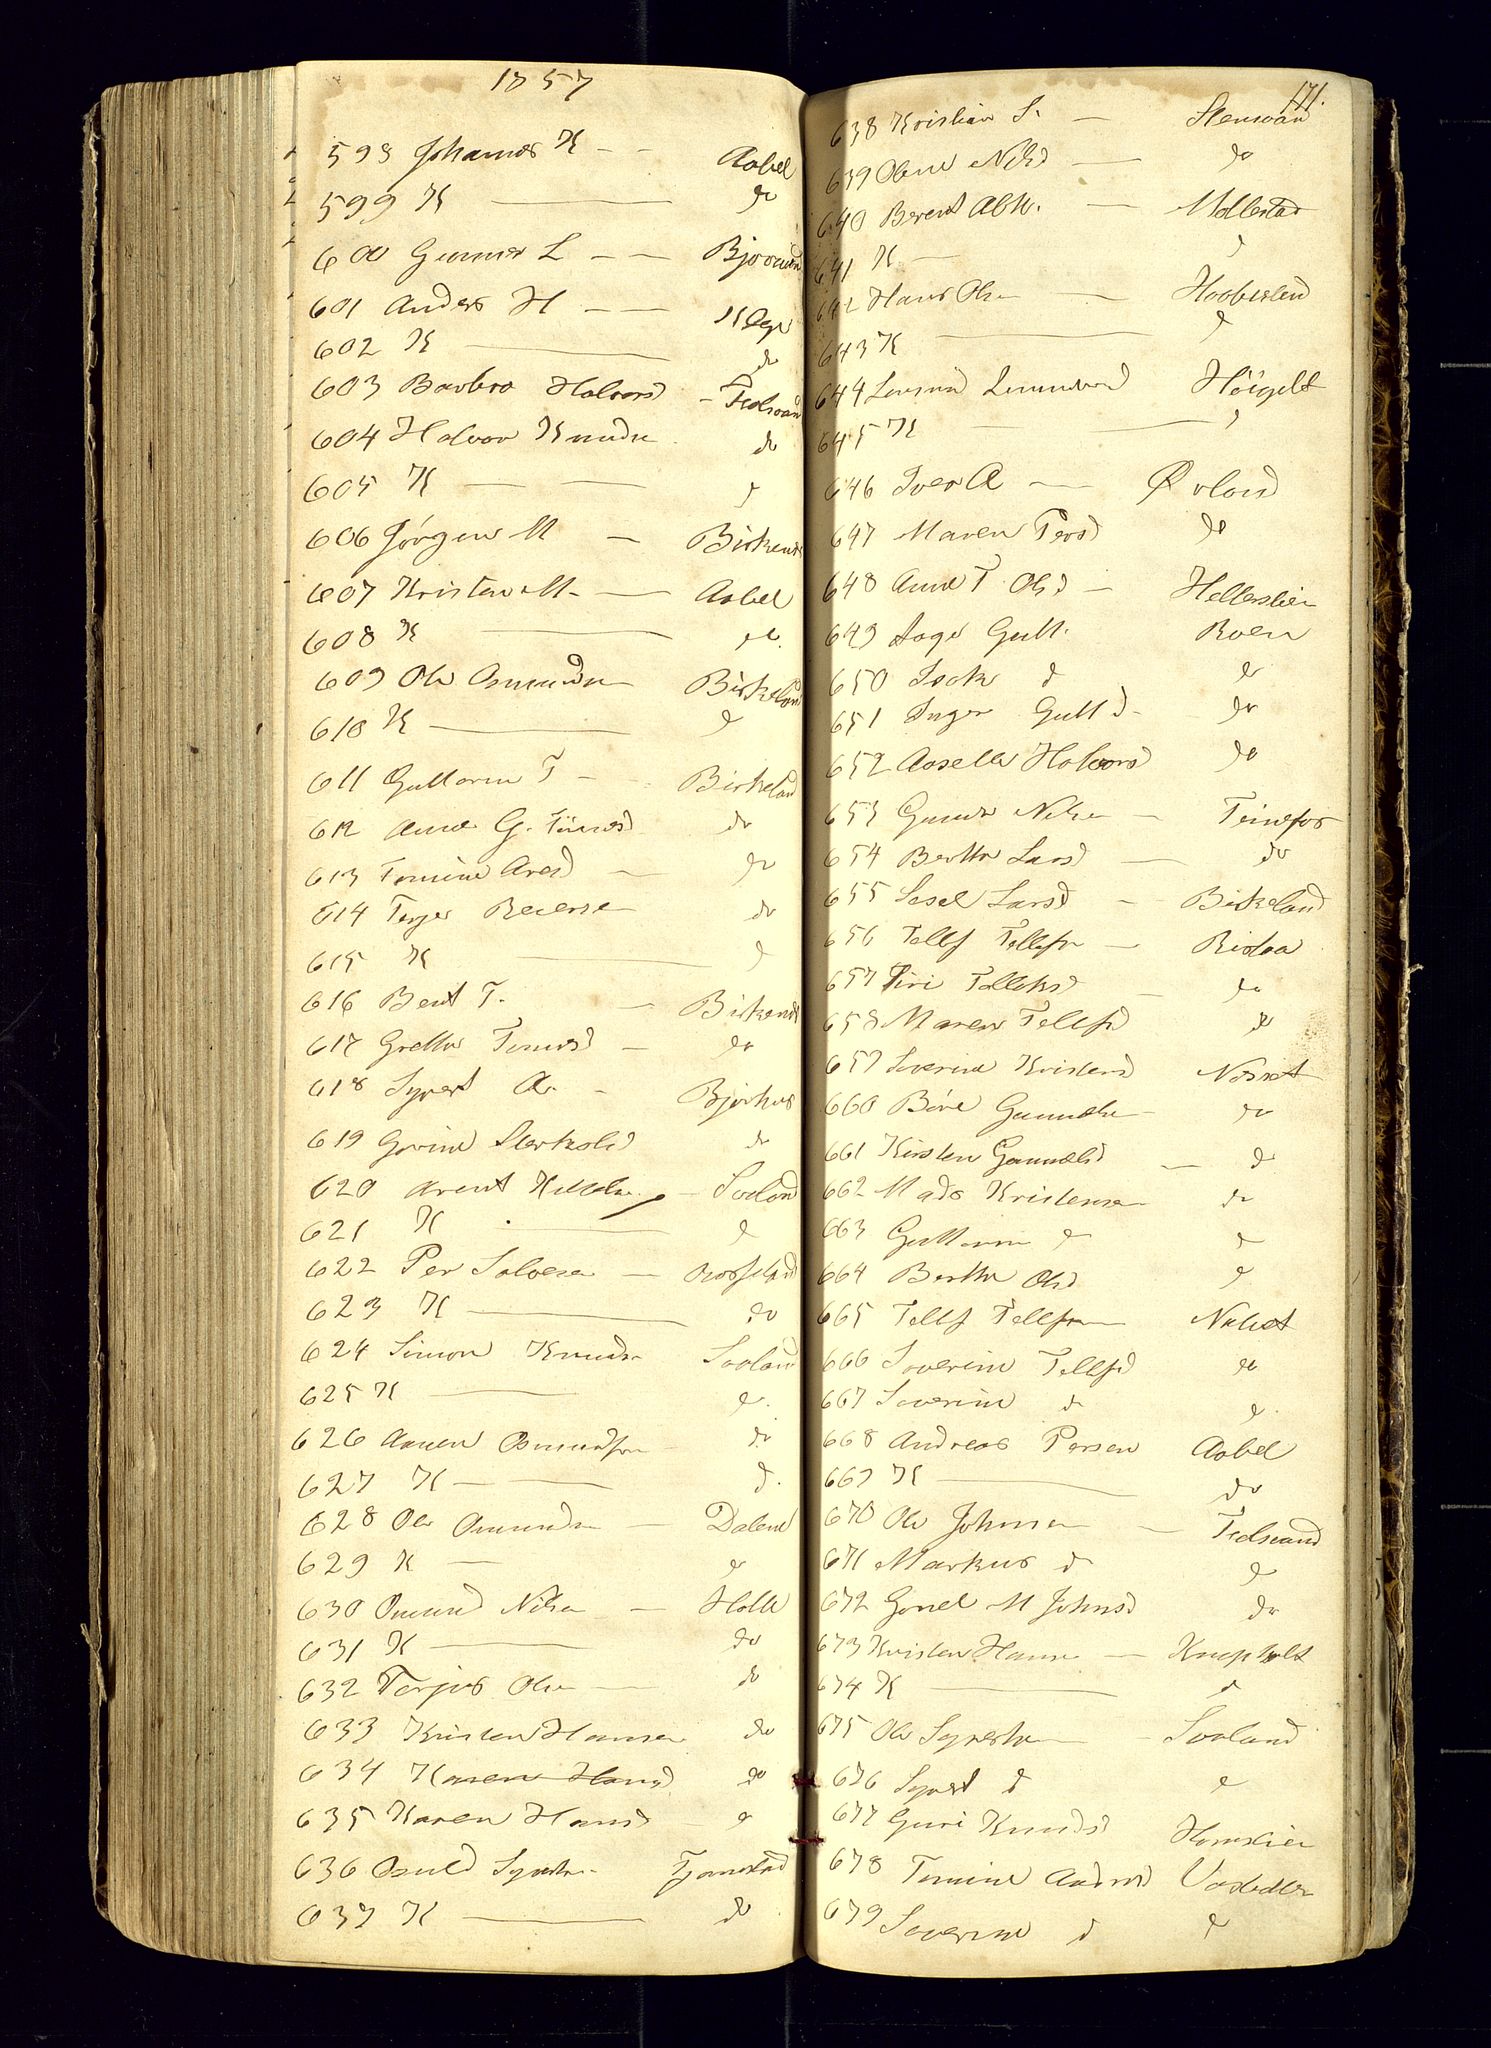 1857
598 Johannes K – – Aabel
599 K — do
600 Gunner L – – Bjorvand
601 Anders H – –
602 K — do
603 Barbro Halvors – Fedsvand
604 Halvor Knuds do
605 K — — d
606 Jörgen M – Birkenes
607 Kristen M – — Aabel
608 K — do
609 Ole Osmunds Birkeland
610 K — d
611 Guttorm T – Birkeland
612 Anne G. Tönnesd do
613 Tomine Aresd — do
614 Terjer Reiersen do
615 K — d
616 Bent T. — Birkenes
617 Grethe Tomasd — do
618 Syvert A. – Bjorkos
619 Gorine Sterkolsd do
620 Arent Kittels – Soeland
621 K — d
622 Per Salvesen — Oddeland
623 K — do
624 Simon Knuds Soeland
625 K — d
626 Aanen Osmundsen do
627 K – — d.
628 Ole Osmunds — Dalene
629 K — d
630 Omund Nilsen – Holte
631 K — do
632 Terjus Olsen — do
633 Kristen Hansen do
634 Karen Hansd do
635 Karen Hansd – d
636 Osuld Syverts – Tjomstad
637 K — do
171.
638 Kristian S. — Stensvand
639 Olene Nilsd — do
640 Berent Abr. — Mollestad
641 K — d
642 Hans Olsen — Haabesland
643 K — d
644 Höigelt
645 K — d
646 Iver A — Øvland
647 Maren Persd do
648 Anne T Olsd – Hellerslien
649 Aage Gutt. Roen
650 Isak d d
651 Inger Gutt d – do
652 Aaselle Halvorsd do
653 Gunder Nilsen – Teinefos
654 Berthe Larsd — do
655 Sesel Larsd – Birkeland
656 Tellf Tellefsen — Risdaa
657 Siri Tellefsd – do
658 Maren Tellfsd do
659 Severine Kristensd Næset
660 Böre Gunnulsen – do
661 Kirsten Gunnulsd — d
662 Mads Kristensen do
663 Guttorm d d
664 Berthe Olsd d
665 Tellf Tellfsen Næset
666 Severine Tellfsd do
667 Severine do d
668 Andreas Persen Aabel
669 K — do
670 Ole Johnsen — Fedsvand
671 Markus d d
672 Gonel M Johnsd do
673 Kristen Hansen — Knapholt
674 K — d
675 Ole Syverts – Soeland
676 Syvert d d
677 Guri Knudsd Homslien
678 Tomine Andersd
679 Severine d d